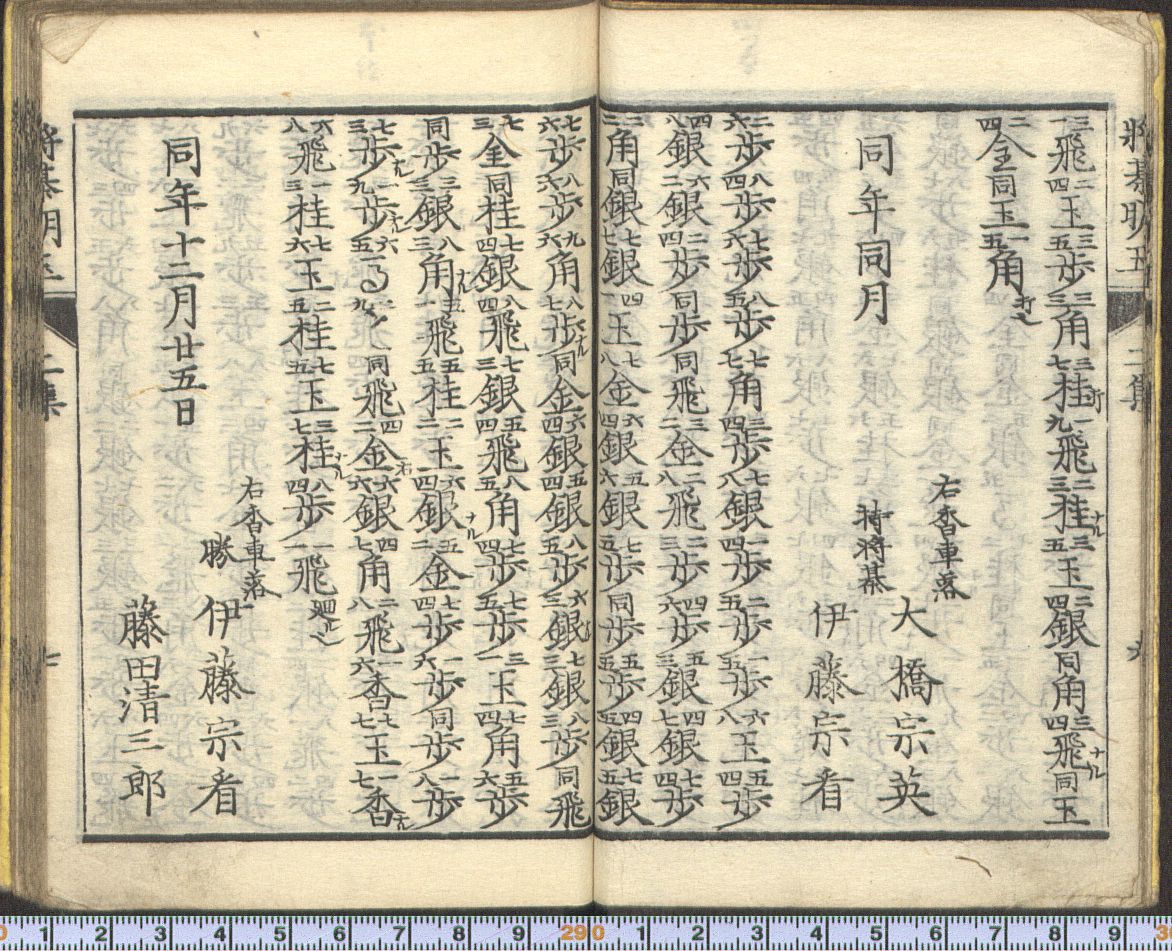 三一飛二四玉三五歩三三角三七桂打一九飛二三桂ナル三五玉二四銀同角三四飛ナル同玉
二四金同玉一五角
同年同月
右香車落
大橋宗英
持将棊
伊藤宗看
二六歩八四歩七六歩八五歩七七角三四歩七八銀一四歩二五歩一五歩六八玉五四歩
四八銀六二銀二四歩同歩同飛三二金二八飛二三歩四六歩五三銀四七銀七四歩
二二角同銀七七銀四一玉七八金六四銀五六銀七五歩同歩五五歩四五銀七五銀
七六歩八六歩九六角八七歩ナル同金六四銀五四銀八五歩六三銀ナル七三銀八三歩同飛
七三金同桂七四銀八四飛七三銀五四飛八五角七四歩七五歩三一玉七四角五六歩
同歩三三銀八三角ナル五二飛五五桂二二玉六四銀ナル五二金七四歩一六歩同歩一八歩
七三歩ナル一九歩ナル六五馬二九ト同飛四二金六六銀四七角二八飛一六香七七玉一七香ナル
六八飛一三桂七六玉二五桂七五玉三七桂ナル八四歩一一飛
同年十二月廿五日
右香車落
勝 伊藤宗看
藤田清三郎
将棊明玉 二集 六
将棊明玉 二集 七